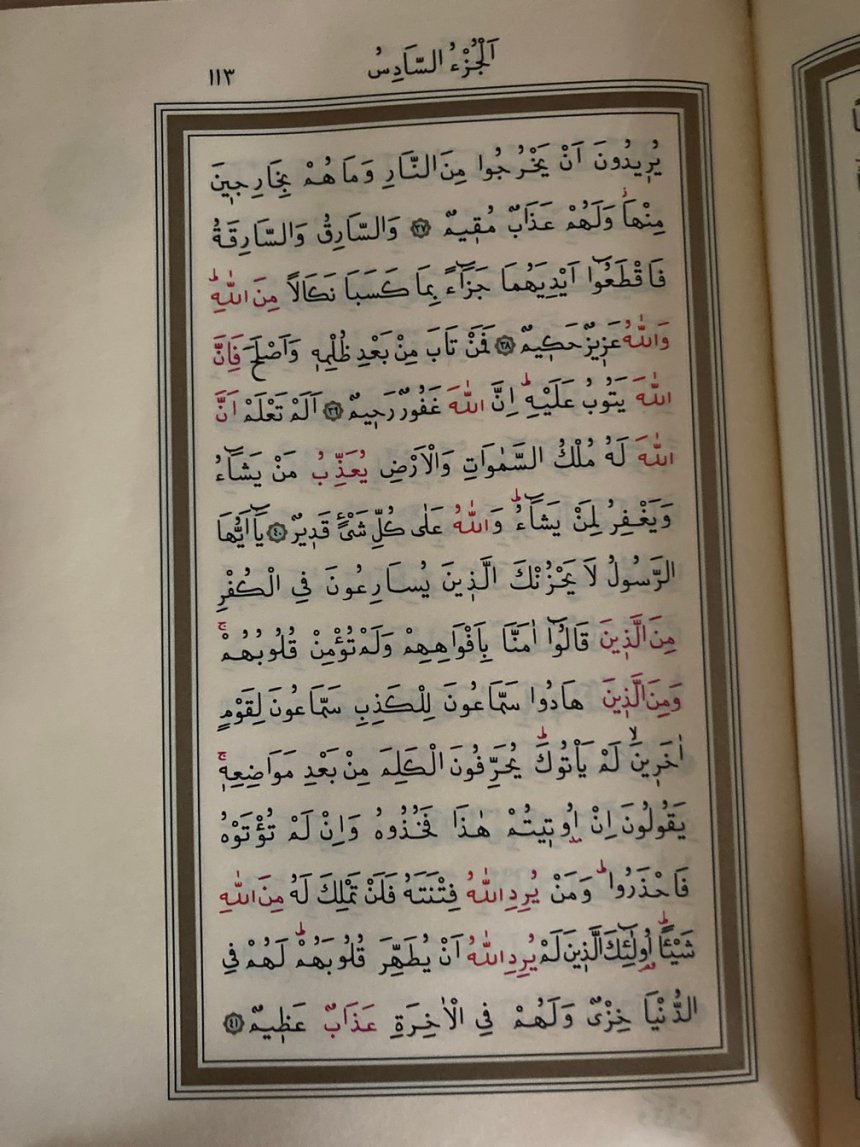 اَلْجُزْءُ السَّادِسُ
١١٣
يُرِيدُونَ اَنْ يَخْرُجُوا مِنَ النَّارِ وَمَا هُمْ بِخَارِجِينَ
مِنْهَاۘ وَلَهُمْ عَذَابٌ مُقِيمٌ ﴿٣٧﴾ وَالسَّارِقُ وَالسَّارِقَةُ
فَاقْطَعُٓوا اَيْدِيَهُمَا جَزَٓاءً بِمَا كَسَبَا نَكَالاً مِنَ اللّٰهِۜ
وَاللّٰهُ عَزِيزٌ حَكِيمٌ ﴿٣٨﴾ فَمَنْ تَابَ مِنْ بَعْدِ ظُلْمِهِ وَاَصْلَحَ فَاِنَّ
اللّٰهَ يَتُوبُ عَلَيْهِۜ اِنَّ اللّٰهَ غَفُورٌ رَحِيمٌ ﴿٣٩﴾ اَلَمْ تَعْلَمْ اَنَّ
اللّٰهَ لَهُ مُلْكُ السَّمٰوَاتِ وَالْاَرْضِ يُعَذِّبُ مَنْ يَشَٓاءُ
وَيَغْفِرُ لِمَنْ يَشَٓاءُۜ وَاللّٰهُ عَلٰى كُلِّ شَيْءٍ قَدِيرٌ ﴿٤٠﴾ يَٓا اَيُّهَا
الرَّسُولُ لَا يَحْزُنْكَ الَّذِينَ يُسَارِعُونَ فِي الْكُفْرِ
مِنَ الَّذِينَ قَالُٓوا اٰمَنَّا بِاَفْوَاهِهِمْ وَلَمْ تُؤْمِنْ قُلُوبُهُمْۚ
وَمِنَ الَّذِينَ هَادُوا سَمَّاعُونَ لِلْكَذِبِ سَمَّاعُونَ لِقَوْمٍ
اٰخَرِينَۙ لَمْ يَأْتُوكَۜ يُحَرِّفُونَ الْكَلِمَ مِنْ بَعْدِ مَوَاضِعِهِۚ
يَقُولُونَ اِنْ اُوتِيتُمْ هٰذَا فَخُذُوهُ وَاِنْ لَمْ تُؤْتَوْهُ
فَاحْذَرُواۜ وَمَنْ يُرِدِ اللّٰهُ فِتْنَتَهُ فَلَنْ تَمْلِكَ لَهُ مِنَ اللّٰهِ
شَيْـًٔاۜ اُو۬لٰٓئِكَ الَّذِينَ لَمْ يُرِدِ اللّٰهُ اَنْ يُطَهِّرَ قُلُوبَهُمْۜ لَهُمْ فِي
الدُّنْيَا خِزْيٌ وَلَهُمْ فِي الْاٰخِرَةِ عَذَابٌ عَظِيمٌ ﴿٤١﴾